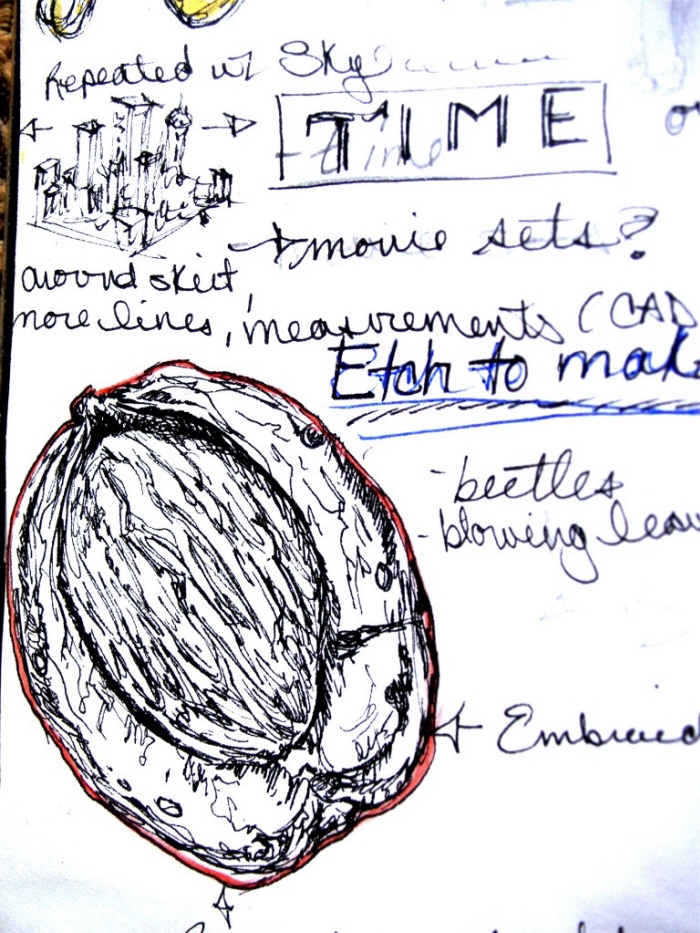 Repeated w/ Sky
TIME
- Time
movie sets?
around skirt,
more lines, measurements (CAD
Etch to make
- beetles
- blowing leav
Embroid